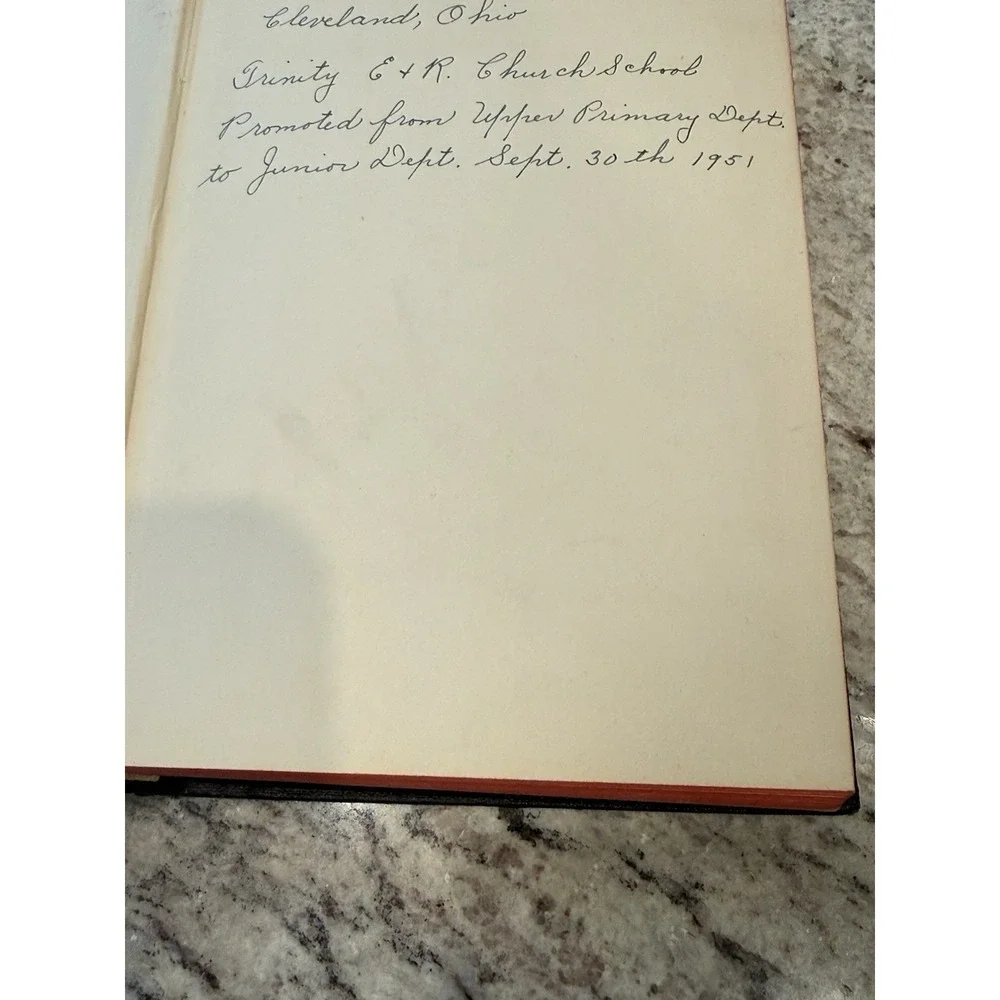 Cleveland, Ohio
Trinity E + R. Church School
Promoted from Upper Primary Dept.
to Junior Dept. Sept. 30 th 1951